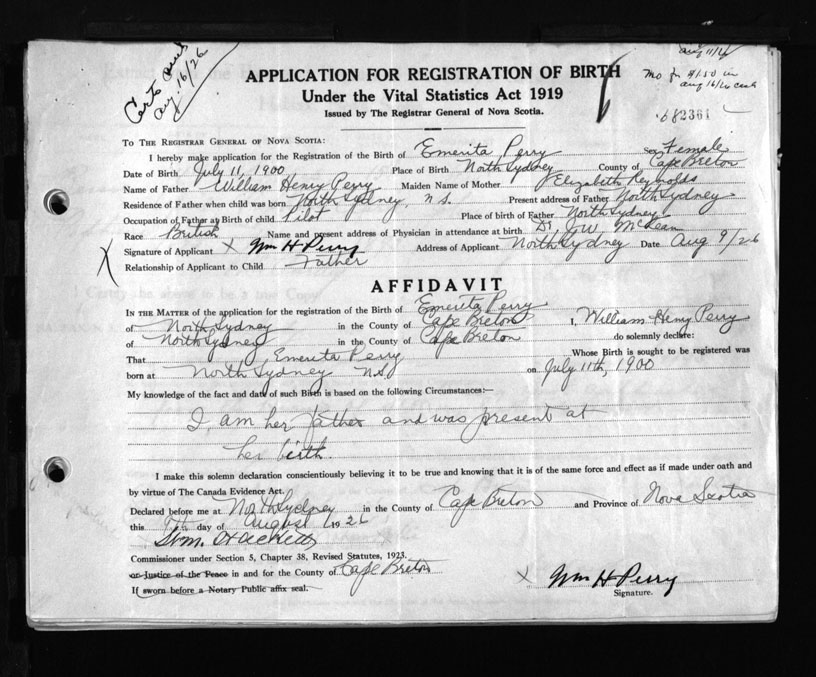 Aug 11/26
Certs and
Aug. 16/26
APPLICATION FOR REGISTRATION OF BIRTH
Mo for $1.50 in
Aug 16/26
Under the Vital Statistics Act 1919
Issued by The Registrar General of Nova Scotia.
682361
TO THE REGISTRAR GENERAL OF NOVA SCOTIA:
I hereby make application for the Registration of the Birth of Emerita Perry Sex Female
Date of Birth July 11, 1900 Place of Birth North Sydney County of Cape Breton
Name of Father William Henry Perry Maiden Name of Mother Elizabeth Reynolds
Residence of Father when child was born North Sydney, N.S. Present address of Father North Sydney
Occupation of Father at Birth of child Pilot Place of birth of Father North Sydney
Race British Name and present address of Physician in attendance at birth Dr. J W McLean
Signature of Applicant X Wm H Perry Address of Applicant North Sydney Date Aug 9/26
Relationship of Applicant to Child Father
AFFIDAVIT
IN THE MATTER of the application for the registration of the Birth of Emerita Perry
of North Sydney in the County of Cape Breton I, William Henry Perry
of North Sydney in the County of Cape Breton do solemnly declare:
That Emerita Perry Whose Birth is sought to be registered was
born at North Sydney N.S. on July 11th, 1900
My knowledge of the fact and date of such Birth is based on the following Circumstances:—
I am her father and was present at
her birth.
I make this solemn declaration conscientiously believing it to be true and knowing that it is of the same force and effect as if made under oath and
by virtue of The Canada Evidence Act.
Declared before me at North Sydney in the County of Cape Breton and Province of Nova Scotia
this 9th day of August 1926
Hackett
Commissioner under Section 5, Chapter 38, Revised Statutes, 1923.
or Justice of the Peace in and for the County of Cape Breton
X Wm H Perry
If sworn before a Notary Public affix seal.
Signature.